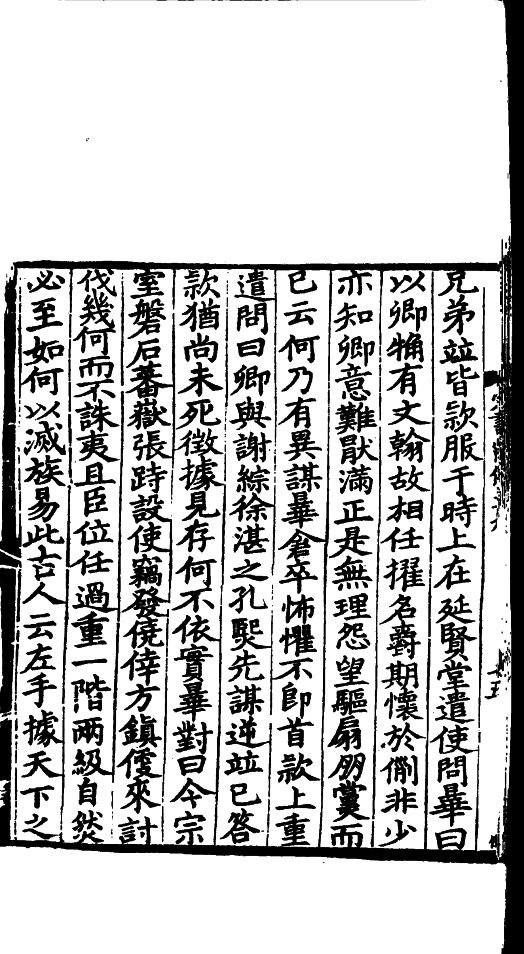 兄弟竝皆款服于時上在延賢堂遣使問曅曰
以卿觕有文翰故相任擢名爵期懷於例非少
亦知卿意難猒滿正是無理怨望驅扇朋黨而
已云何乃有異謀曅倉卒怖懼不即首款上重
遣問曰卿與謝綜徐湛之孔熈先謀逆竝已答
款猶尚未死徵據見存何不依實曅對曰今宗
室磐石蕃嶽張跱設使竊發僥倖方鎮便來討
伐幾何而不誅夷且臣位任過重一階兩級自然
必至如何以滅族易此古人云左手據天下之